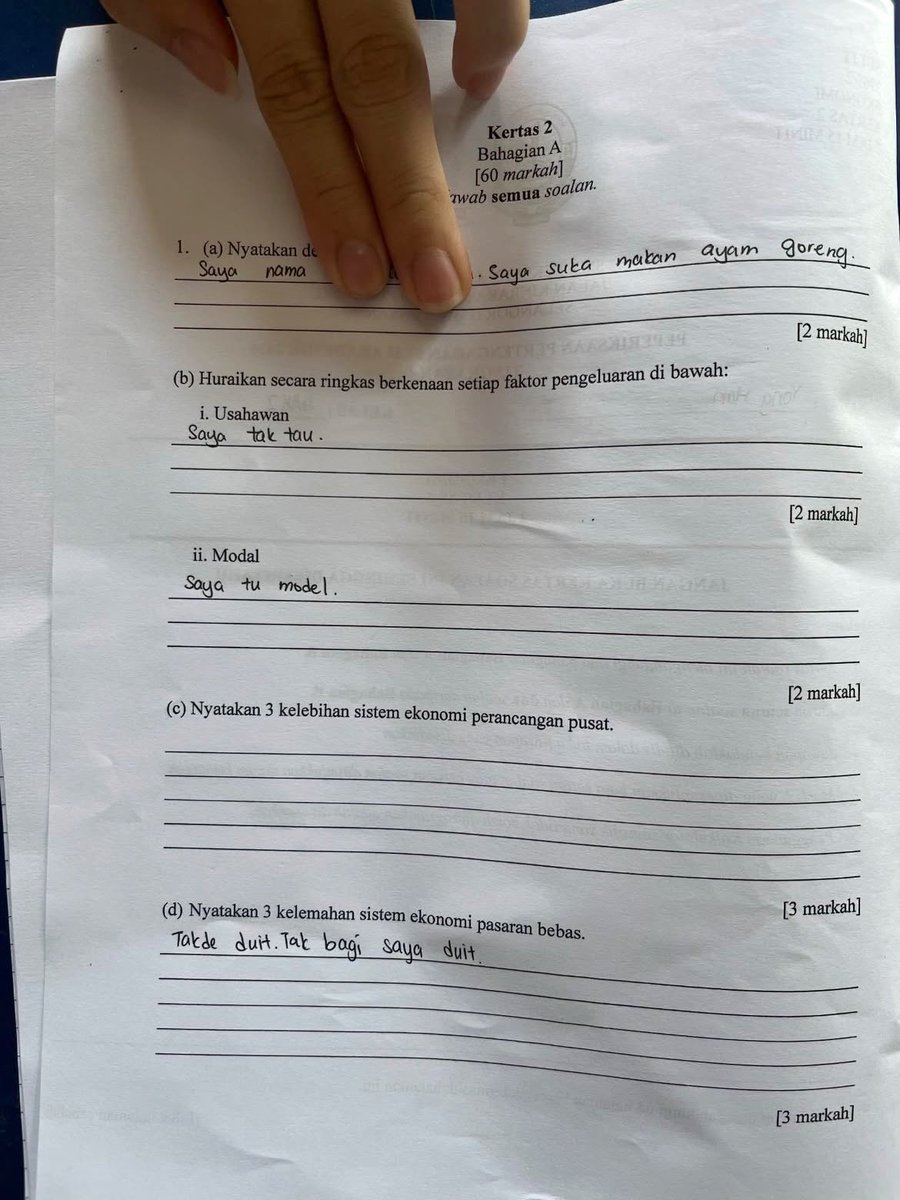 Kertas 2
Bahagian A
[60 markah]
semua soalan.
1. (a) Nyatakan
Saya nama . Saya suka makan ayam goreng.
[2 markah]
(b) Huraikan secara ringkas berkenaan setiap faktor pengeluaran di bawah:
i. Usahawan
Saya tak tau.
[2 markah]
ii. Modal
Saya tu model.
[2 markah]
(c) Nyatakan 3 kelebihan sistem ekonomi perancangan pusat.
[3 markah]
(d) Nyatakan 3 kelemahan sistem ekonomi pasaran bebas.
Takde duit. Tak bagi saya duit.
[3 markah]